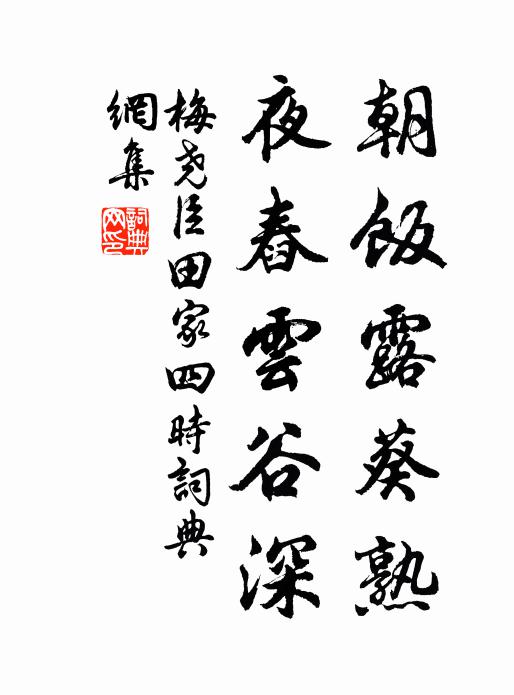 朝飯露葵熟
夜舂雲谷深
梅尧臣田家四時詞典
網集
詞典网印